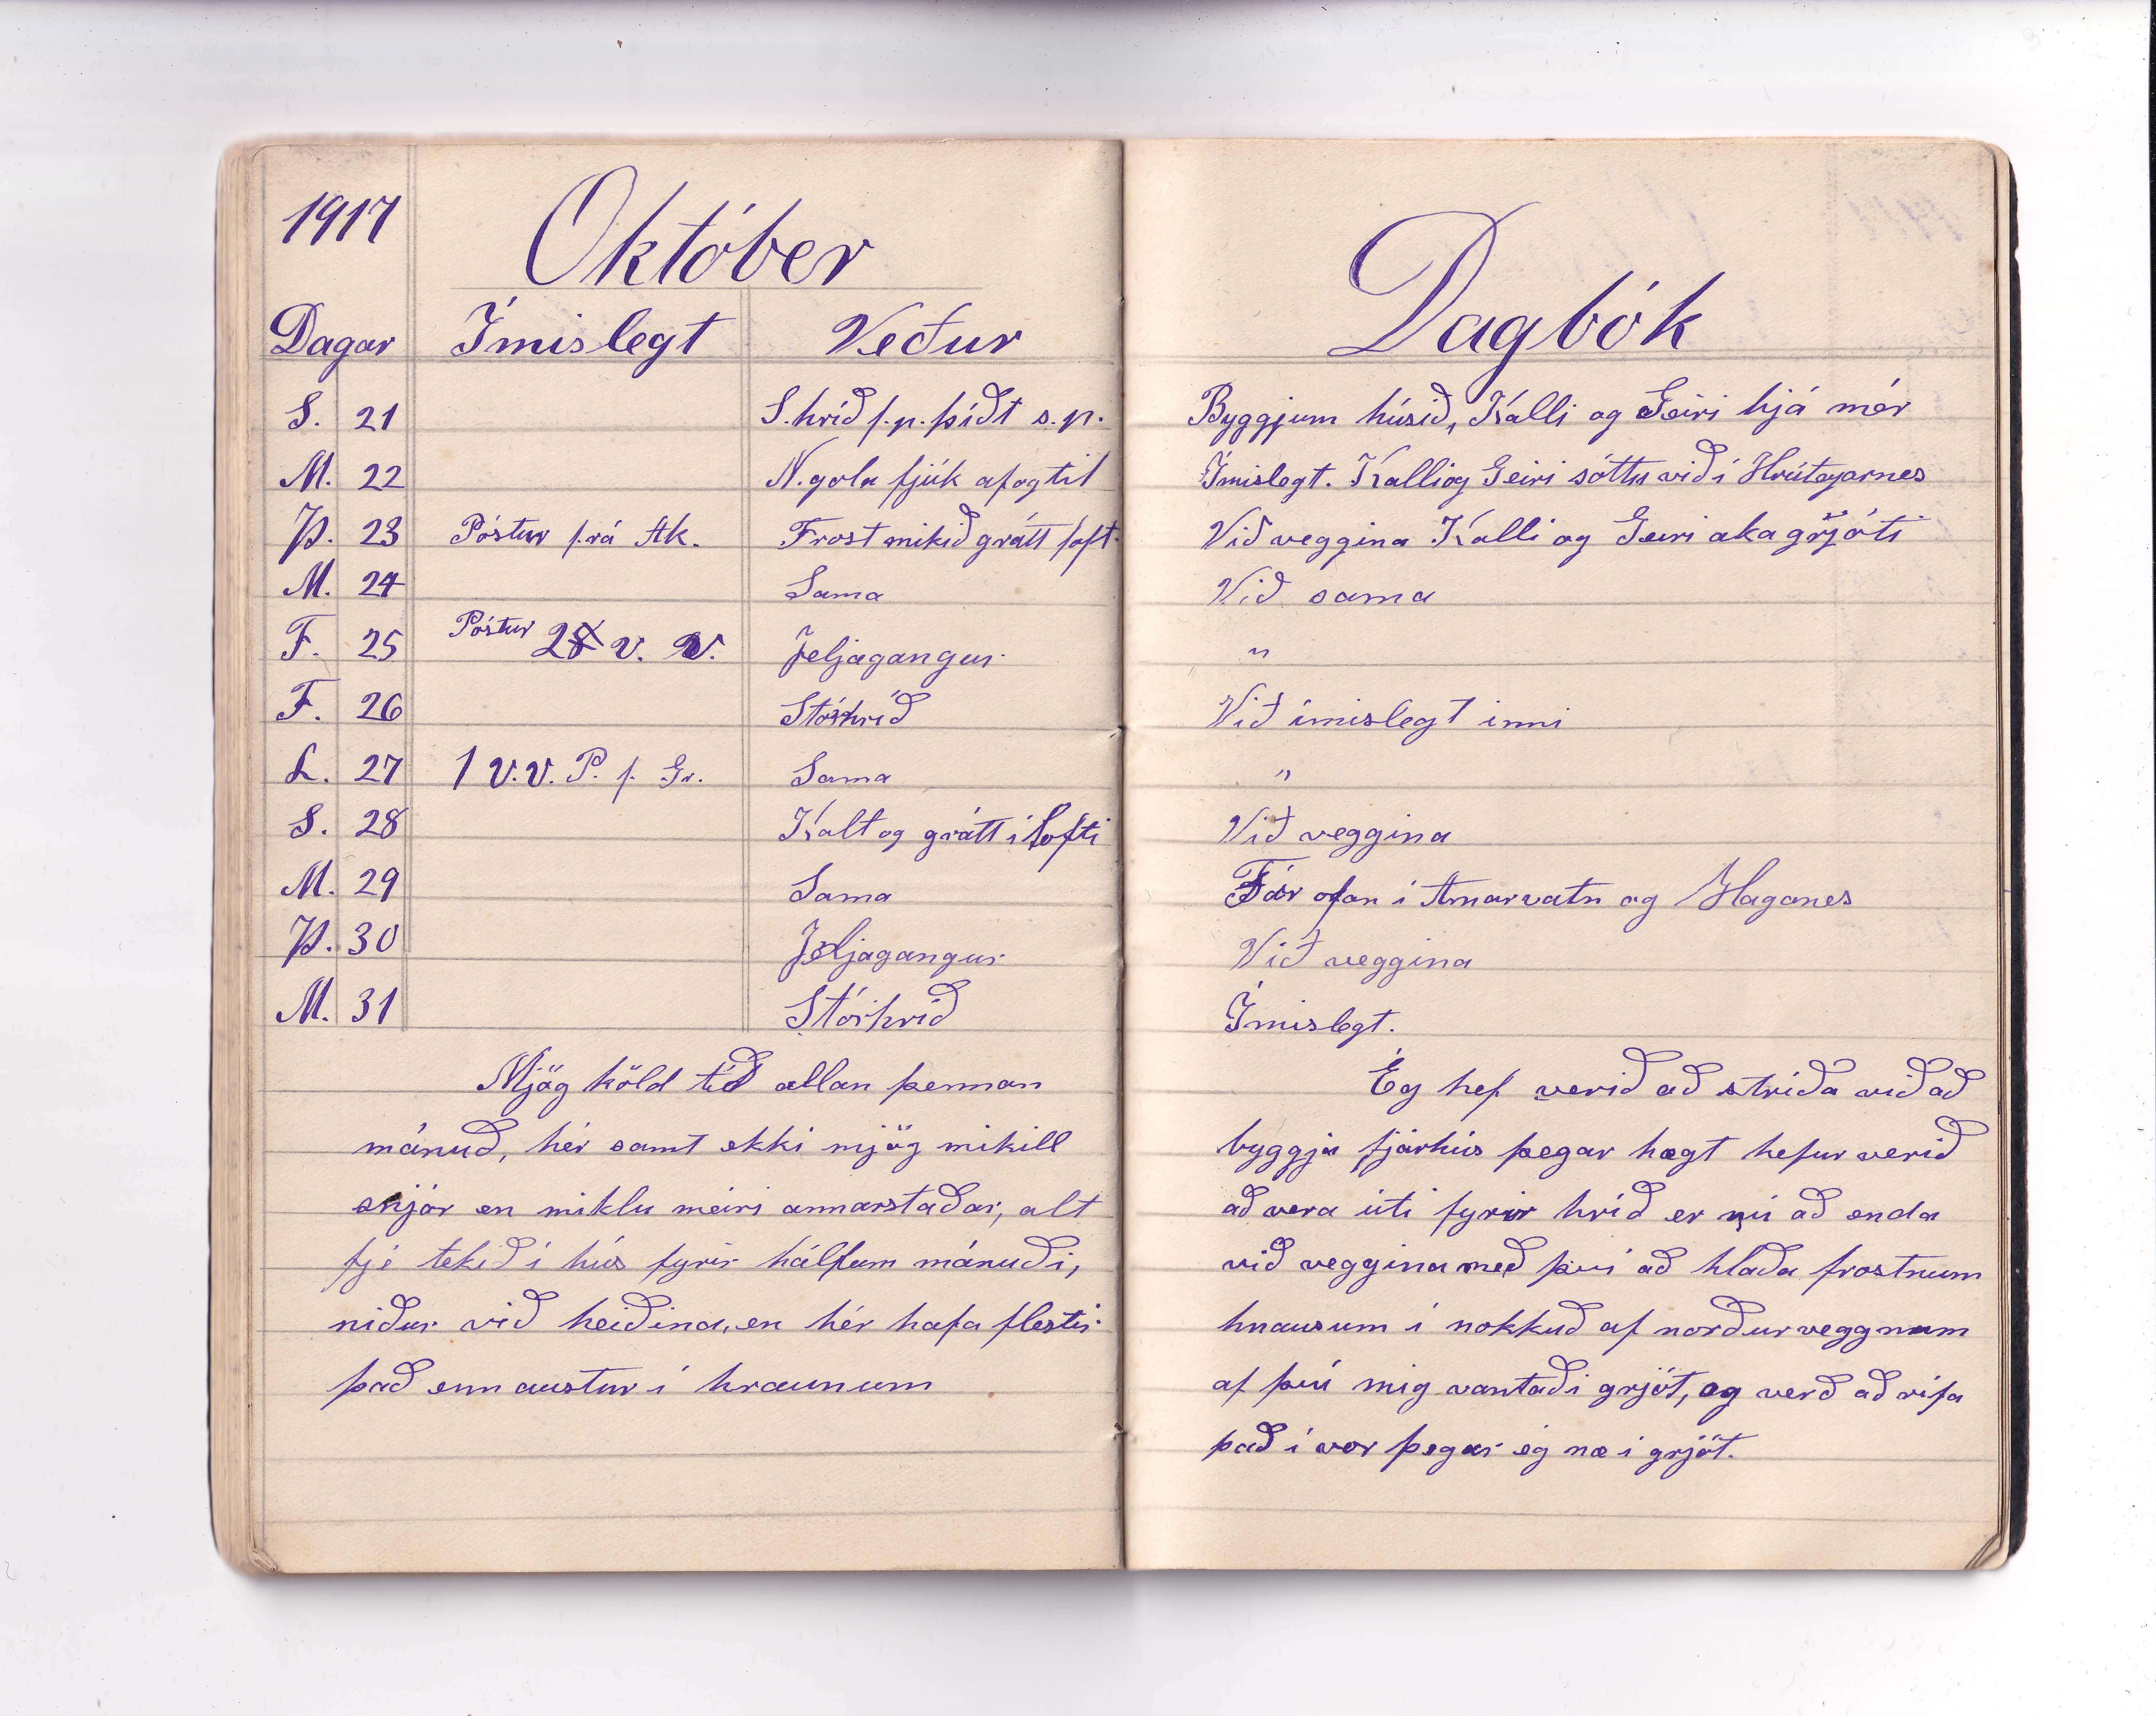 1917 Október
Dagar Ímislegt Veður
S. 21 S.hríð f.p. þíðt s.p.
M. 22 N.gola fjúk af og til
Þ. 23 Póstur frá Ak. Frost mikið grátt loft
M. 24 Sama
F. 25 Póstur v. v. Jeljagangur
F. 26 Stórhríð
L. 27 1 v.v. P. f. Gr. Sama
S. 28 Kalt og grátt í lofti
M. 29 Sama
Þ. 30 Jeljagangur
M. 31 Stórhríð
Mjög köld tíð allan þennan
mánuð, hér samt ekki mjög mikill
snjór en miklu meiri annarstaðar, alt
fje tekið í hús fyrir hálfum mánuði,
niður við heiðina, en hér hafa flestir
það enn austur í hraunum
Dagbók
Byggjum húsið, Kalli og Geiri hjá mér
Ímislegt. Kalli og Geiri sóttu við í Hrúteyarnes
Við veggina Kalli og Geiri aka grjóti
Við sama
"
Við ímislegt inni
"
Við veggina
Fór ofan í Arnarvatn og Haganes
Við veggina
Ímislegt.
Ég hef verið að stríða við að
byggja fjárhús þegar hægt hefur verið
að vera úti fyrir hríð er nú að enda
við veggina með því að hlaða frostnum
hnausum í nokkuð af norðurveggnum
af því mig vantaði grjót, og verð að rífa
það í vor þegar ég næ í grjót.